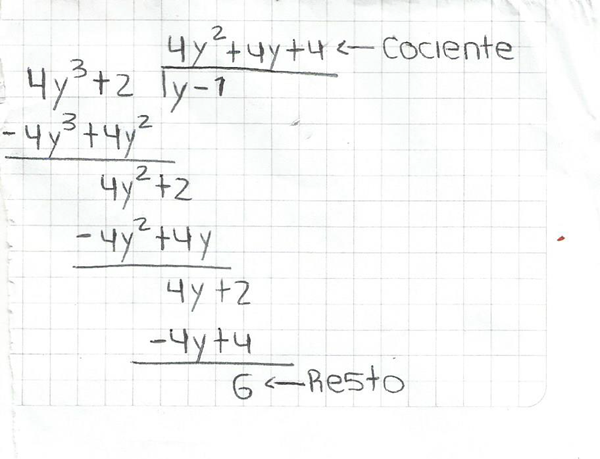 4y²+4y+4 ← Cociente
4y³+2 |y-1
-4y³+4y²
4y²+2
-4y²+4y
4y+2
-4y+4
6 ← Resto